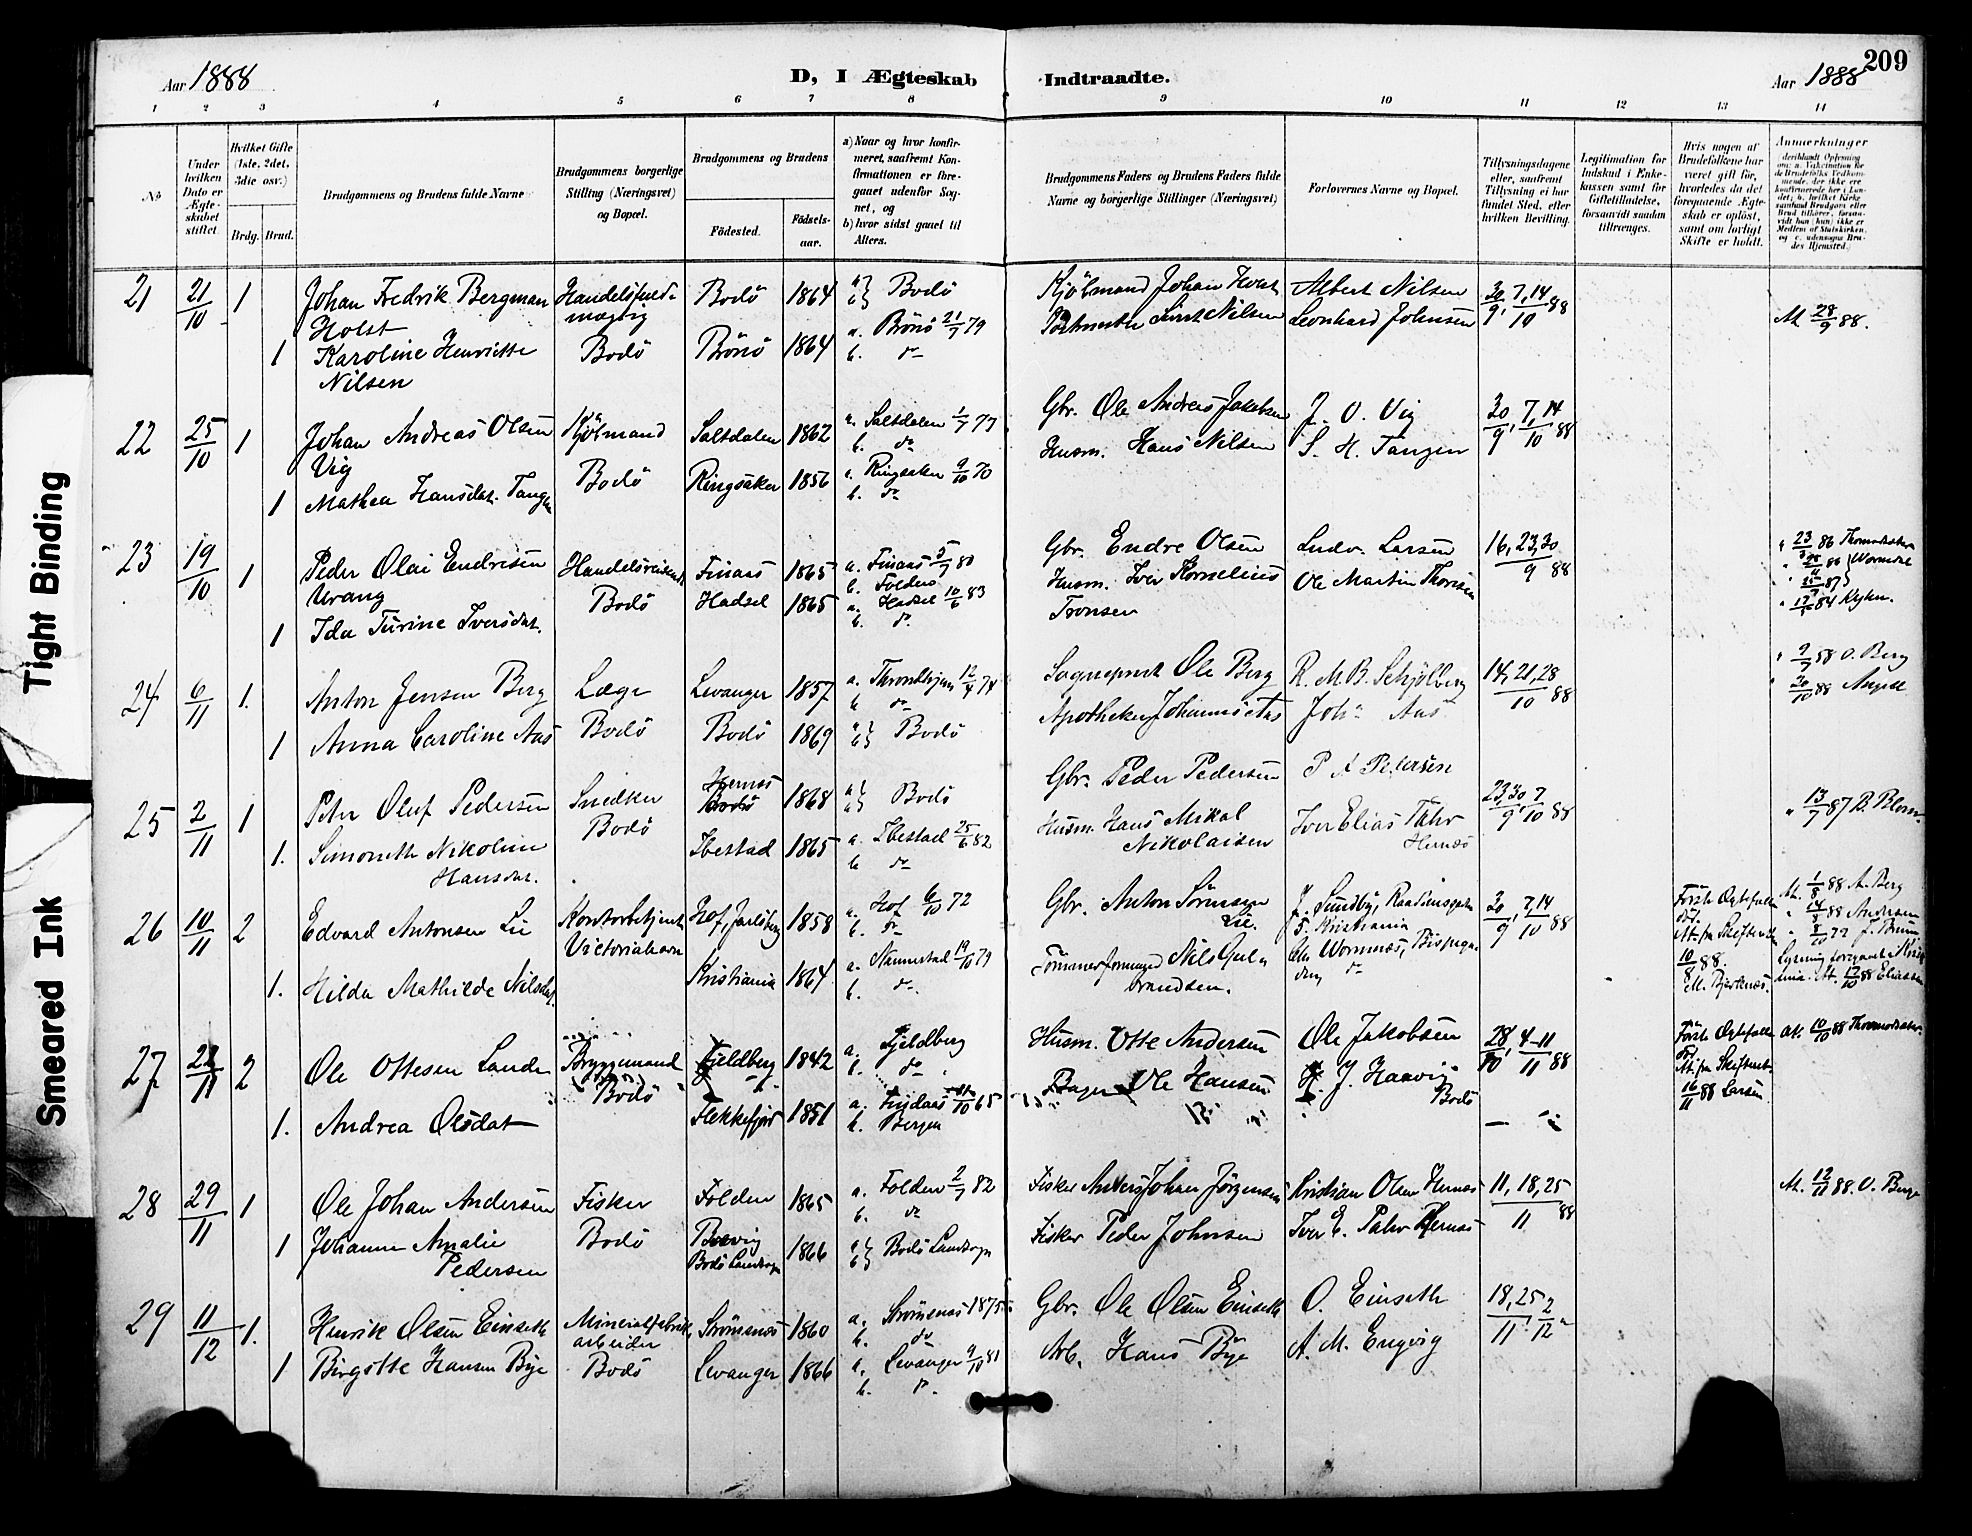 209
Aar 1888
D, I Ægteskab Indtraadte.
Aar 1888
1 2 3 4 5 6 7 8 9 10 11 12 13 14
No
Under hvilken Dato er Ægteskabet stiftet.
Hvilket Gifte (1ste, 2det, 3die osv.)
Brdg. Brud.
Brudgommens og Brudens fulde Navne
Brudgommens borgerlige Stilling (Næringsvei) og Bopæl.
Brudgommens og Brudens
Fødested. Fødselsaar.
a) Naar og hvor konfirmeret, saafremt Konfirmationen er foregaaet udenfor Sognet, og
b) hvor sidst gaaet til Alters.
Brudgommens Faders og Brudens Faders fulde Navne og borgerlige Stillinger (Næringsvei)
Forlovernes Navne og Bopæl.
Tillysningsdagene eller, saafremt Tillysning ei har fundet Sted, efter hvilken Bevilling.
Legitimation for Indskud i Enkekassen samt for Giftetilladelse, forsaavidt saadan tiltrænges.
Hvis nogen af Brudefolkene har været gift før, hvorledes da det foregaaende Ægteskab er opløst, samt om lovligt Skifte er holdt.
Anmærkninger
21 21/10 1 Johan Fredrik Bergman Holst
Bodø 1864 a b Bodø
Kjølmand Johan Holst
Albert Nilsen
30/9, 7,14/10 88
At. 28/9 88.
1 Karoline Henriette Nilsen
Bodø
Brönö 1864 a. Brönö 21/7 79 b. do
Nilsen
Leonhard Johnsen
22 25/10 1 Johan Andreas Olsen Vig
Kjølmand
Saltdalen 1862 a. Saltdalen 1/7 77 b. do
Gbr. Ole Andreas Jakobsen
J. O. Vig
30/9, 7,14/10 88
1 Mathea Hansdat. Tangen
Bodø
Ringsaker 1856 a. Ringsaker 9/10 70 b. do
Husm. Hans Nilsen
S. H. Tangen
23 19/10 1 Peder Olai Endresen Urang
Finaas 1865 a. Finaas 5/7 80 b. Folden
Gbr. Endre Olsen
Ludv. Larsen
16, 23,30/9 88
1 Ida Turine Iversdat.
Bodø
Hadsel 1865 a. Hadsel 10/6 83 b. do
Husm. Iver Kornelius Tronsen
Ole Martin Thoresen
24 6/11 1. Anton Jensen Berg
Læge
Levanger 1857 a. Throndhjem 12/4 74 b do
Sogneprest Ole Berg
R. M. B. Schjølberg
14, 21, 28/10 88
O. Berg
1 Anna Caroline Aas
Bodø
Bodø 1869 a b Bodø
Apotheker Johannes Aas
Joh. Aas
25 2/11 1 Peter Oluf Pedersen
Snedker
Hernæs Bodø 1868 a b Bodø
Gbr. Peder Pedersen
P A Petersen
23,30/9, 7/10 88
13/7 87 B. Blom
1. Simoneth Nikoline Hansdat.
Bodø
Ibestad 1865 a. Ibestad 25/6 82 b do
Husm. Hans Mikal Nikolaisen
Iver Elias Pahr Hernæs
26 10/11 2 Edvard Antonsen Lie
Kontorbetjent
Hof, Jarlsberg 1858 a. Hof 6/10 72 b. do
Gbr. Anton Sörensen Lie.
J. Sundby, Kristiania
30/9, 7,14/10 88
Förste Ægtefælle död.
10/8 88. M. Bjerknæs.
At. 1/8 88 A. Berg
14/8 88 Andersen
1. Hilda Mathilde Nilsdat.
Victoriahavn
Kristiania 1864 a. Nannestad 19/10 79 b. do
Tömmerformand Nils Gulbrandsen.
27 22/11 2 Ole Ottesen Lande
Bryggemand
Fjeldberg 1842 a. Fjeldberg b. do
Husm. Otte Andersen
Ole Jakobsen
28/10, 4-11/11 88
Förste Ægtefælle
16/11 88 Larsen
At. 10/10 88
1. Andrea Olsdat
Bodø
Flekkefjord 1851 a. b. Bergen
Bager Ole Hansen
H. J. Haavig Bodø
28 29/11 1 Ole Johan Andersen
Fisker
Folden 1865 a. Folden 2/7 82 b. do
Fisker Anders Johan Jörgensen
Kristian Olsen Hernæs
11, 18, 25/11 88
At. 12/11 88. O. Berg
1 Johanne Amalie Pedersen
Bodø
Bodö Landsogn 1866 a b Bodö Landsogn
Fisker Peder Johnsen
Iver E. Pahr Hernæs
29 11/12 1. Henrik Olsen Einseth
Mineralfabrik arbeider
Strömsnæs 1860 a. Strömsnæs 1875 b. do
Gbr. Ole Olsen Einseth
O. Einseth
18, 25/11, 2/12
1 Birgitte Hansen Bye
Bodø
Levanger 1866 a. Levanger 9/10 81 b. do
Arb. Hans Bye
A. M. Engvig
Tight Binding
Smeared Ink